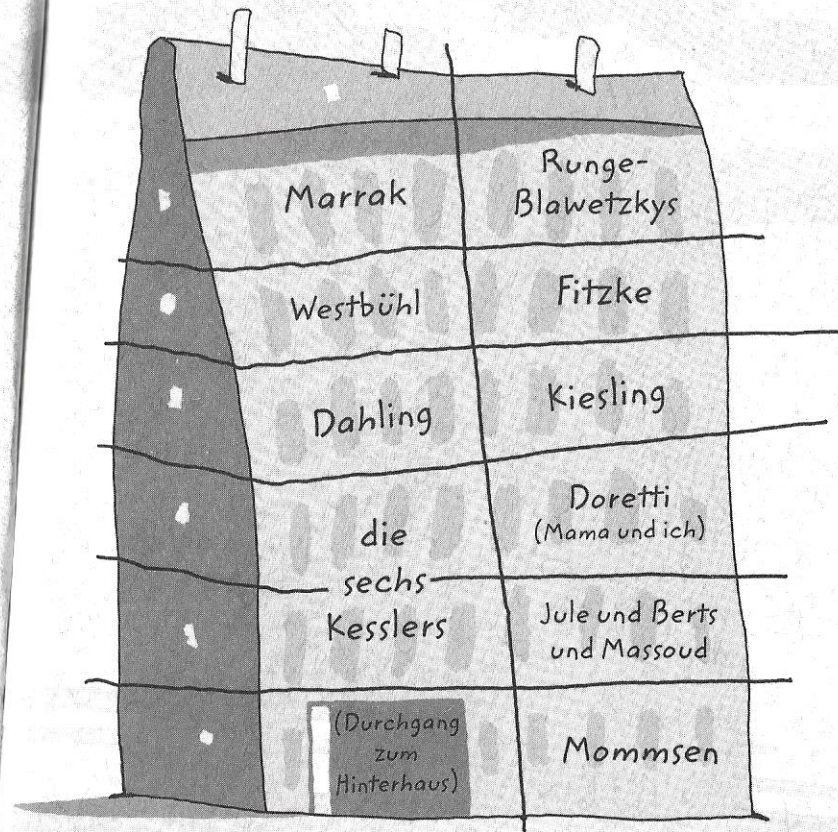 Marrak
Runge-
Blawetzkys
Westbühl
Fitzke
Dahling
Kiesling
die
sechs
Kesslers
Doretti
(Mama und ich)
Jule und Berts
und Massoud
(Durchgang
zum
Hinterhaus)
Mommsen